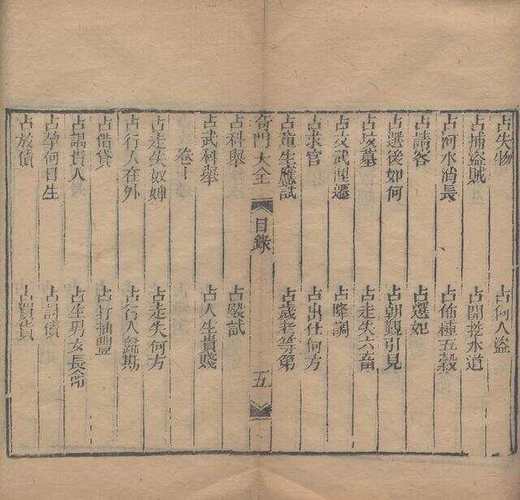 占失物 占何人盗
占捕盗賊 占開挖水道
占河水消長 占佈種五穀
占請客 占選妃
占選後如何 占朝覲引見
占墳墓 占走失六畜
占文武陞遷 占降調
占求官 占出仕何方
占童生應試 占歲考等第
奇門大全 目錄 五
占科舉 占殿試
占武科舉 占人生貴賤
卷十
占走失奴婢 占走失何方
占行人在外 占行人歸期
占借貸 占打抽豐
占謁貴人 占生男女長命
占孕何日生 占討債
占放債 占買貨